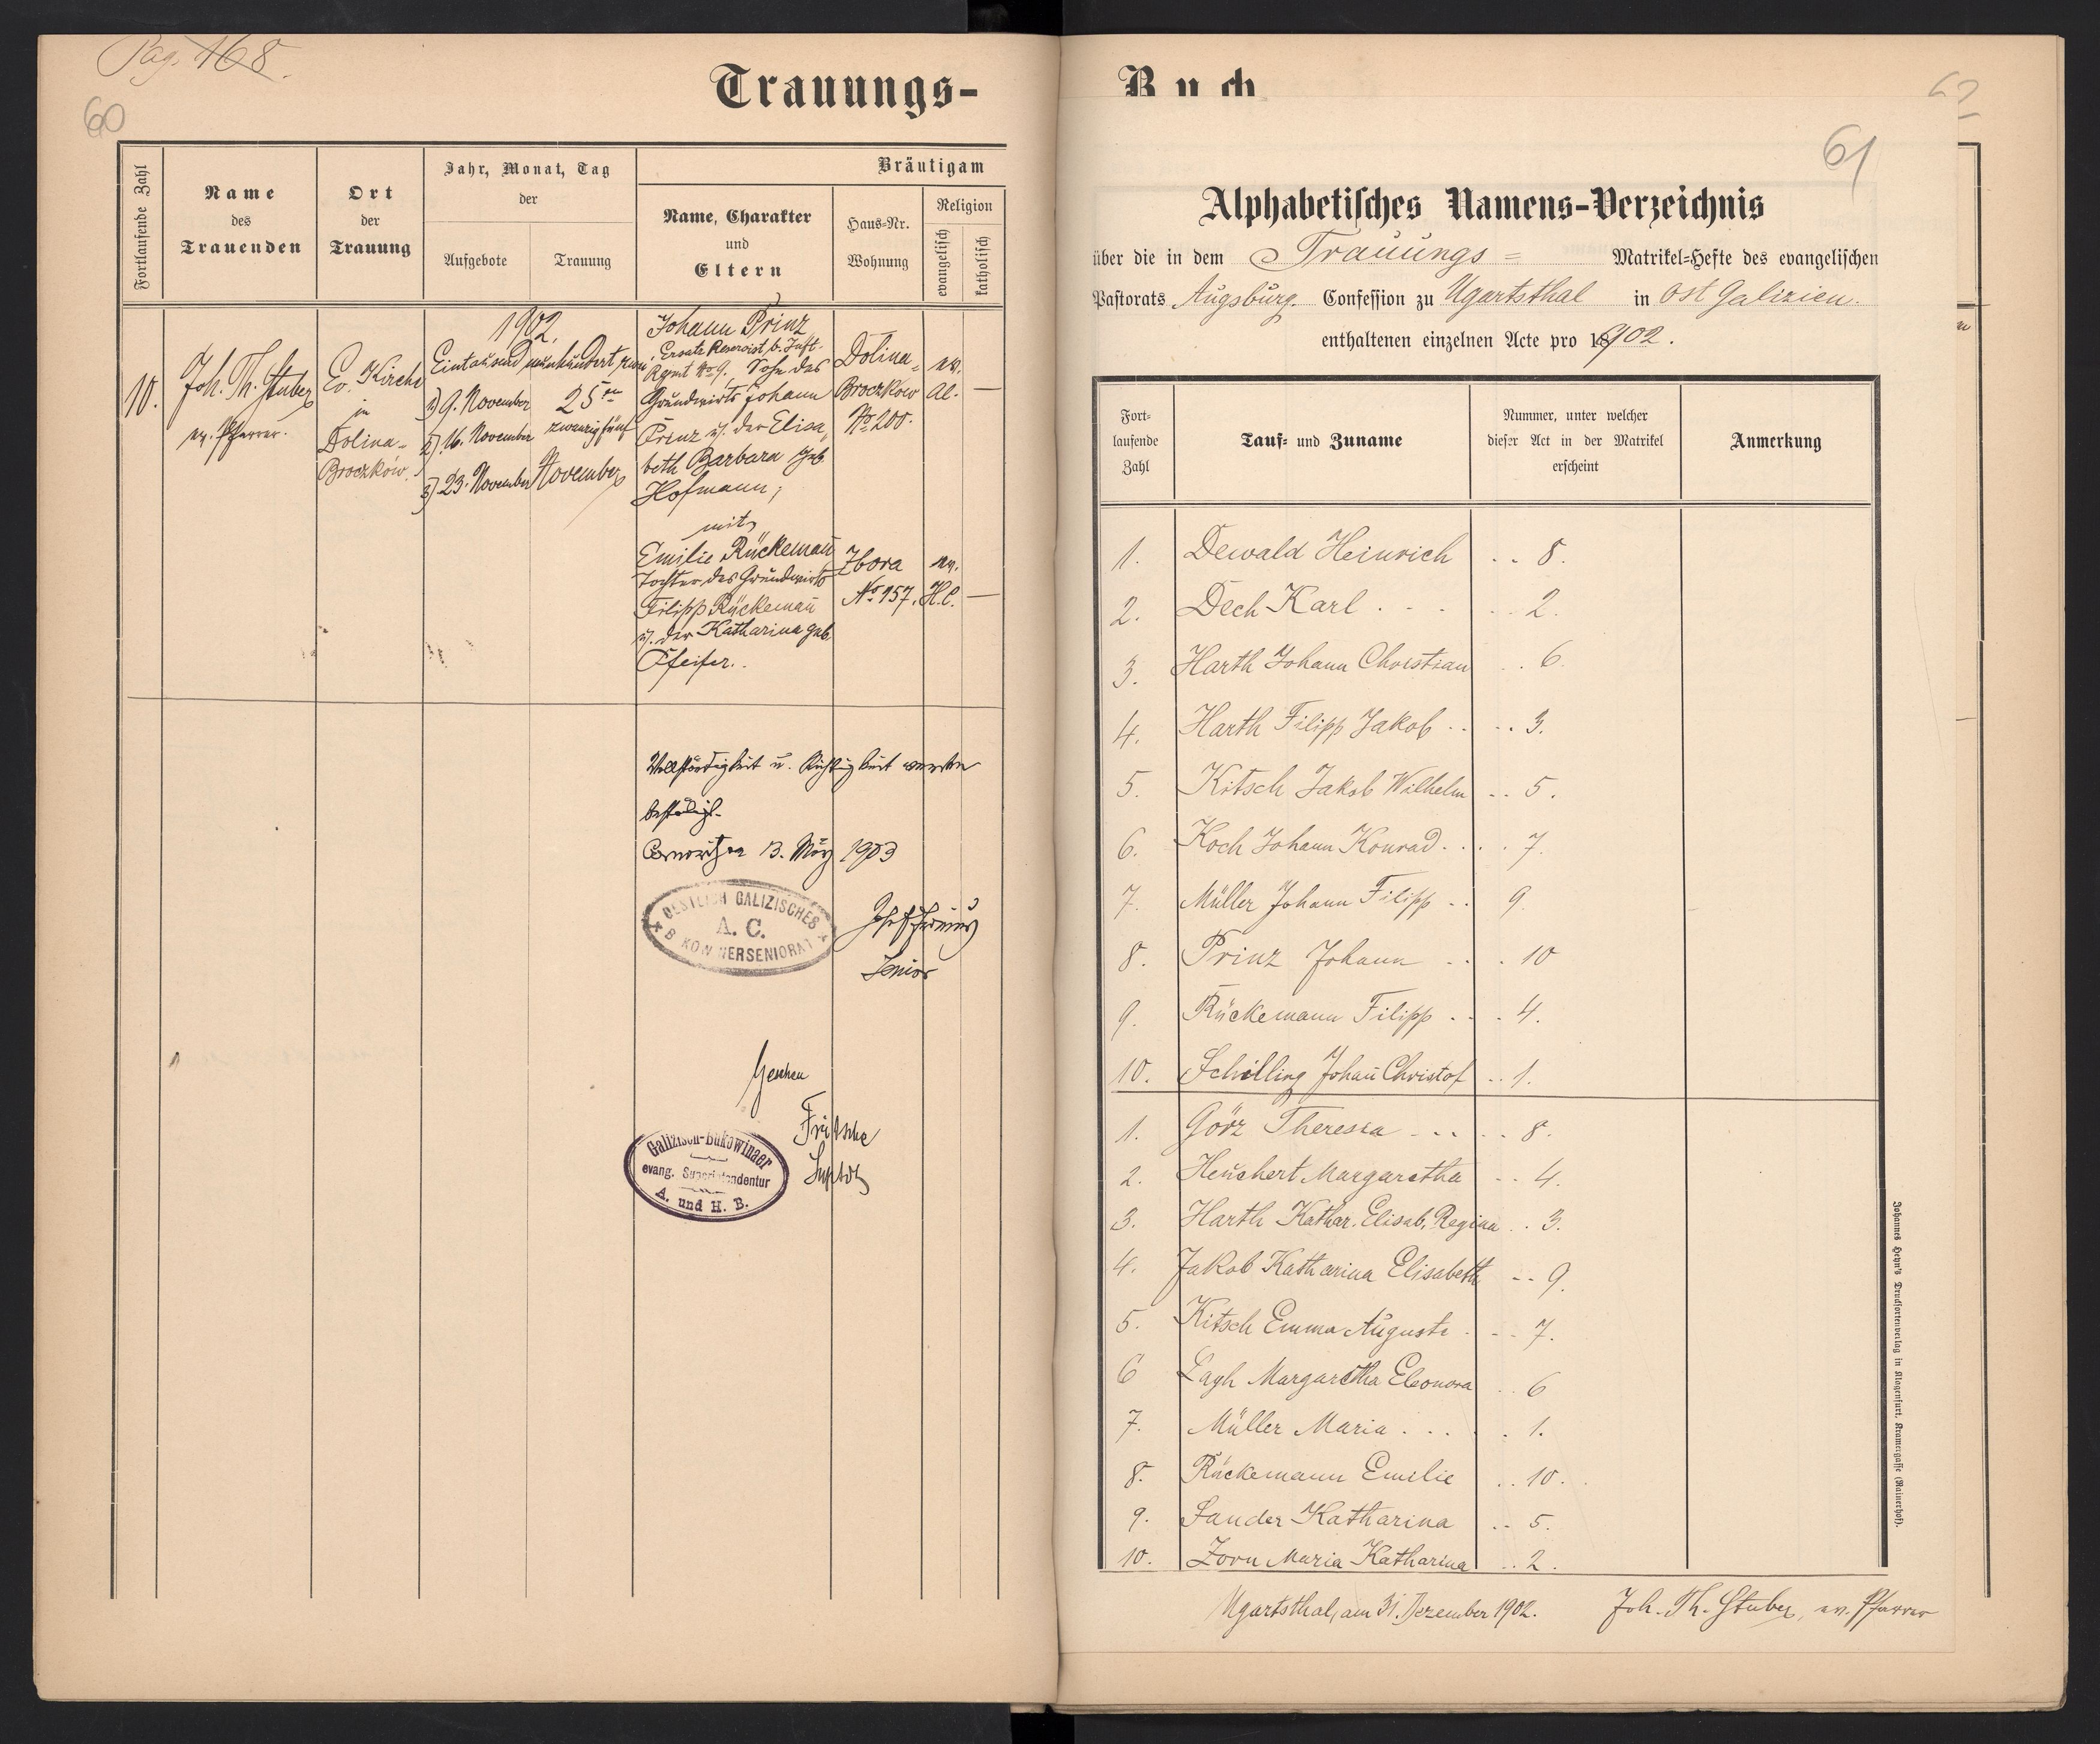 Pag. 168.
60
Trauungs-
Fortlaufende Zahl
Name
des
Trauenden
Ort
der
Trauung
Jahr, Monat, Tag
der
Aufgebote
Trauung
Bräutigam
Name, Charakter
und
Eltern
Haus-Nr.
Wohnung
Religion
evangelisch
katholisch
10.
Joh. Th. Stuber
ev. Pfarrer.
Ev. Kirche
in
Dolina-
Broczków.
1902.
Eintausend neunhundert zwei
1) 9. November
2) 16. November
3) 23. November
25ten
zwanzigfünf
November
Johann Prinz,
Ersatz Reservist b. Inft.
Rgmt No 9, Sohn des
Grundwirts Johann
Prinz u. der Elisa
beth Barbara geb
Hofmann;
mit
Emilie Rückemañ
Tochter des Grundwirts
Filipp Rückemañ
u. der Katharina geb.
Pfeifer.
Dolina-
Broczkow
No 200.
ev.
Al. —
Zbora
No 157.
ev.
H.C. —
Vollständigkeit u. Richtigkeit werden
bestätigt.
13. März 1903
OESTLICH GALIZISCHES
A. C.
Senior
Gesehen
Fritsche
Suptdt
Galizisch-Bukowinaer
evang. Superintendentur
A. und H. B.
Buch
62
61
Alphabetisches Namens-Verzeichnis
über die in dem Trauungs= Matrikel-Hefte des evangelischen
Pastorats Augsburg. Confession zu Ugartsthal in Ost Galizien.
enthaltenen einzelnen Acte pro 1902.
Fort-
laufende
Zahl
Tauf- und Zuname
Nummer, unter welcher
dieser Act in der Matrikel
erscheint
Anmerkung
1. Dewald Heinrich .. 8.
2. Dech Karl . - - - - 2.
3. Harth Johann Christian . . 6.
4. Harth Filipp Jakob . . - . . 3.
5. Kitsch Jakob Wilhelm . . 5.
6. Koch Johann Konrad . . . . 7.
7. Müller Johann Filipp . . 9.
8. Prinz Johann - . . . 10
9. Rückemann Filipp . . - . 4.
10. Schilling Johañ Christof . . 1.
1. Görz Theresia - . . - . 8.
2. Heuchert Margaretha - - 4.
3. Harth Kathar. Elisab. Regina . . 3.
4. Jakob Katharina Elisabeth - - 9.
5. Kitsch Emma Auguste . - - 7.
6 Lagh Margaretha Eleonora . . 6
7. Müller Maria . . . . 1.
8. Rückemann Emilie . . 10.
9. Sander Katharina . . 5.
10. Zorn Maria Katharina . . 2.
Ugartsthal, am 31. Dezember 1902. Joh. Th. Stuber, ev. Pfarrer
Johannes Heyn's Drucksortenverlag in Klagenfurt, Kramergasse (Rainerhof).